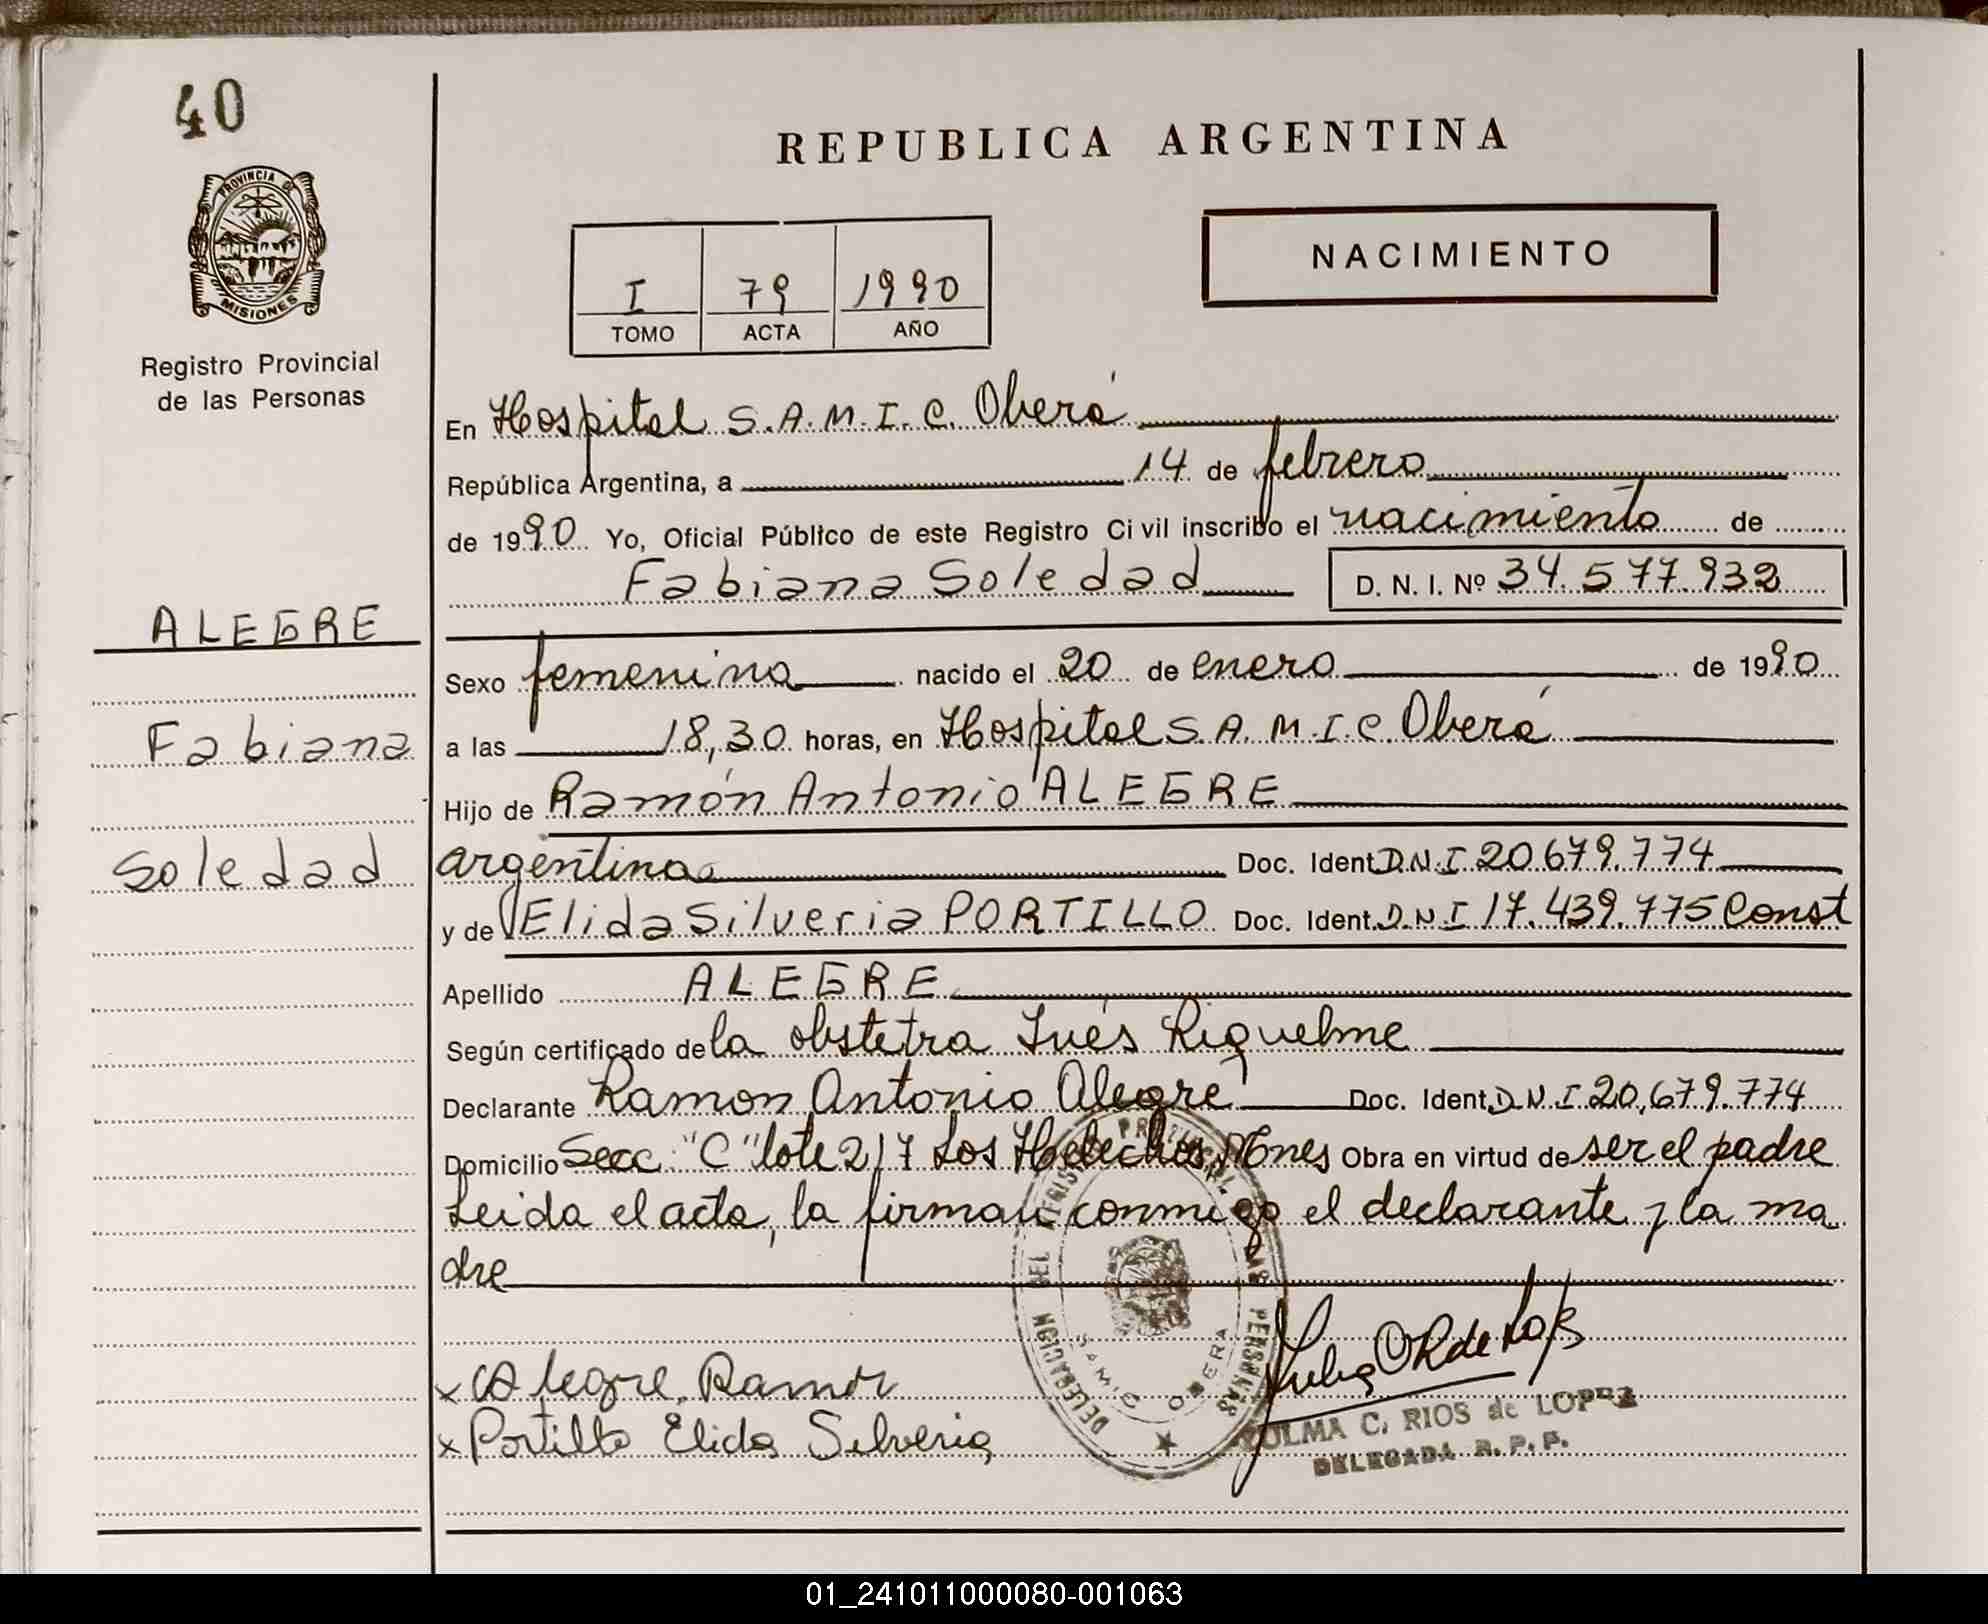 40
PROVINCIA DE
MISIONES
Registro Provincial
de las Personas
REPUBLICA ARGENTINA
NACIMIENTO
I 79 1990
TOMO ACTA AÑO
En Hospital S.A.M.I.C. Oberá
República Argentina, a 14 de febrero
de 1990 Yo, Oficial Público de este Registro Civil inscribo el nacimiento de
Fabiana Soledad D. N. I. Nº 34.577.932
ALEGRE
Fabiana
Soledad
Sexo femenino nacido el 20 de enero de 1990
a las 18,30 horas, en Hospital S.A.M.I.C Oberá
Hijo de Ramón Antonio ALEGRE
argentino Doc. Ident D.N.I 20.679.774
y de Elida Silveria PORTILLO Doc. Ident. D.N.I 17.439.775 Const
Apellido ALEGRE
Según certificado de la obstetra Inés Riquelme
Declarante Ramon Antonio Alegre Doc. Ident. D.N.I 20,679.774
Domicilio Secc "C" lote 217 Los Helechos, Mnes Obra en virtud de ser el padre
Leida el acta, la firman conmigo el declarante y la ma
dre
x Alegre, Ramon
x Portillo Elida Silveria
DELEGACION DEL REGISTRO PROVINCIAL DE LAS PERSONAS
SAMIC OBERA
ZULMA C. RIOS de LOPEZ
DELEGADA R. P. P.
01_241011000080-001063